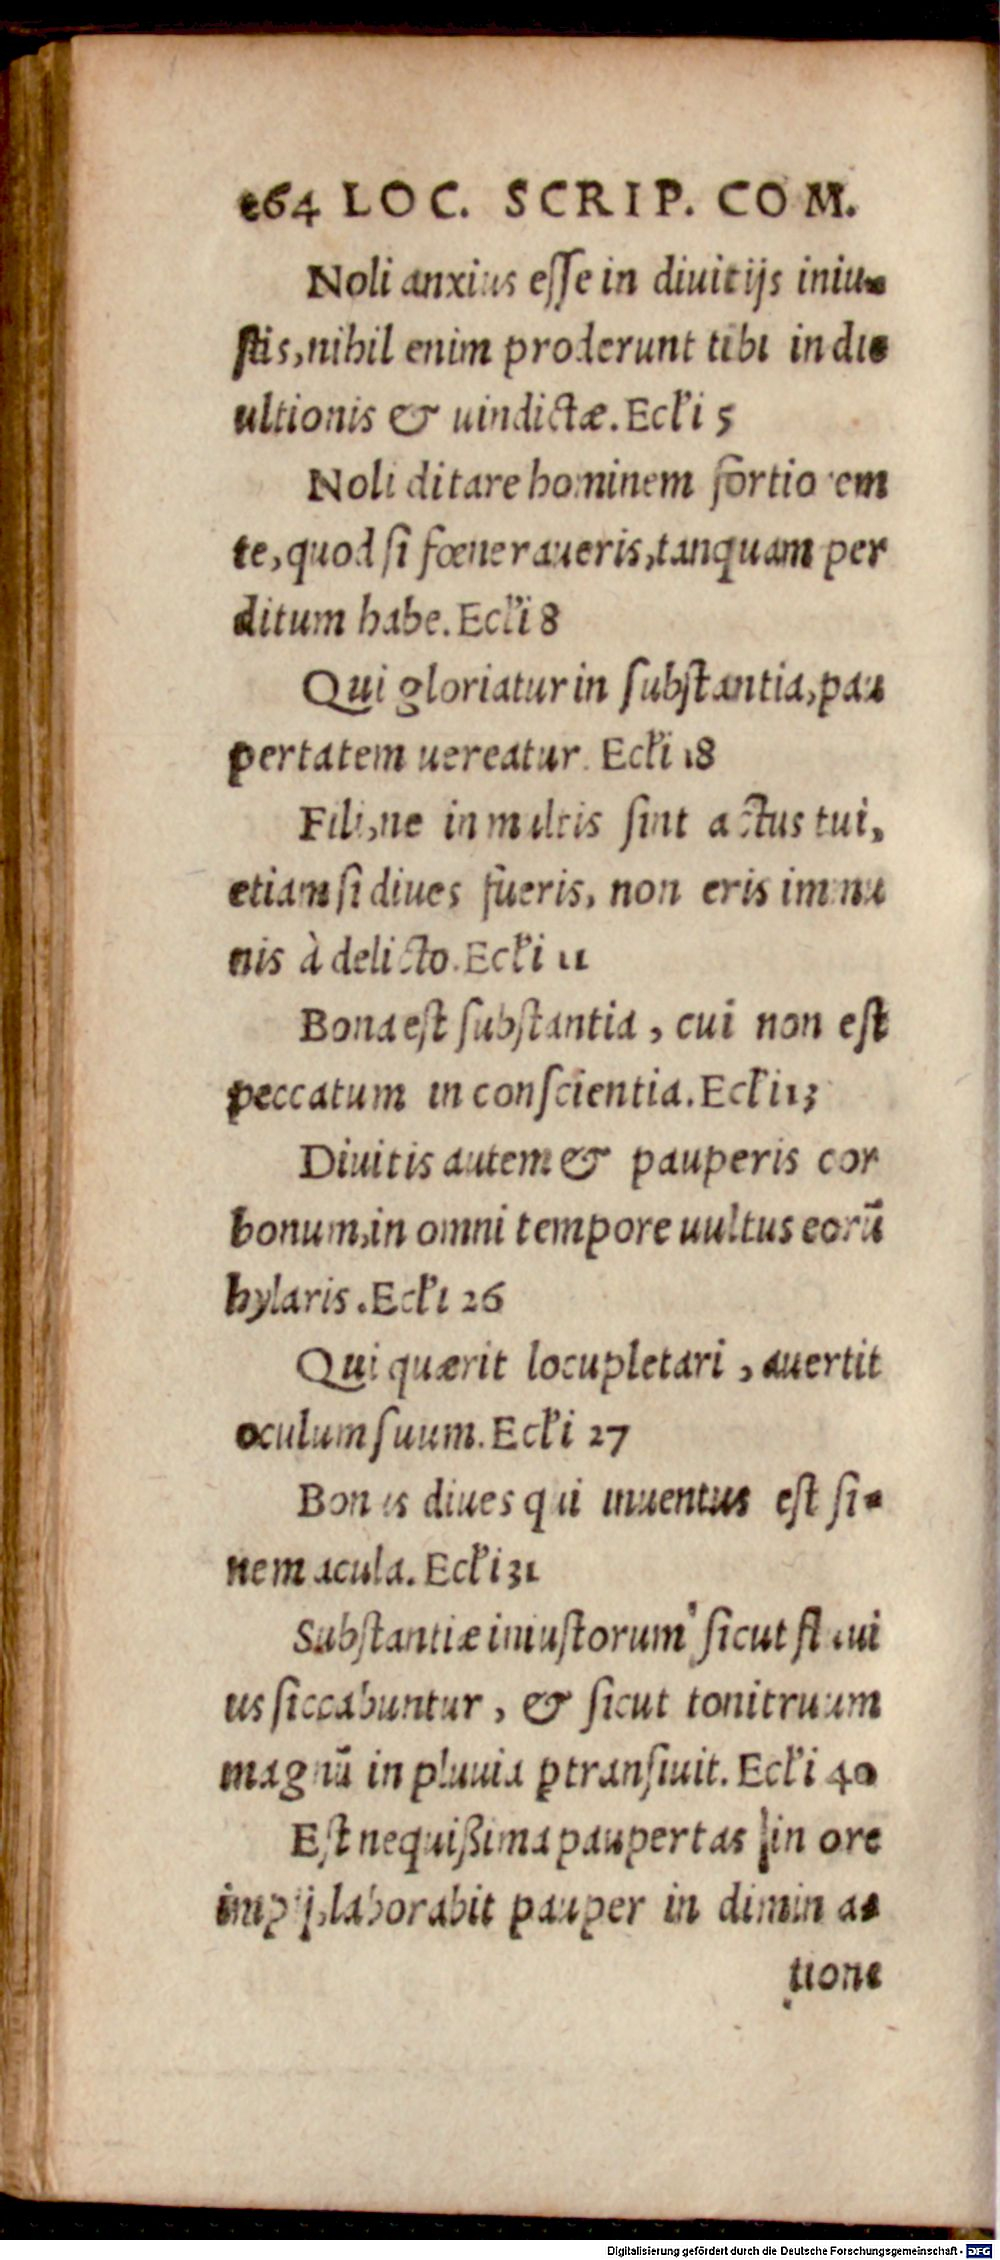 264 LOC. SCRIP. COM.
Noli anxius eſſe in diuitijs iniu-
ſtis, nihil enim proderunt tibi in die
ultionis & uindictæ. Ecl'i 5
Noli ditare hominem fortiorem
te, quod ſi fœneraueris, tanquam per
ditum habe. Ecl'i 8
Qui gloriatur in ſubſtantia, pau
pertatem uereatur. Ecl'i 18
Fili, ne in multis ſint actus tui,
etiam ſi diues fueris, non eris immu
nis à delicto. Ecl'i 11
Bona eſt ſubſtantia, cui non eſt
peccatum in conſcientia. Ecl'i 13
Diuitis autem & pauperis cor
bonum, in omni tempore uultus eorū
hylaris. Ecl'i 26
Qui quærit locupletari, auertit
oculum ſuum. Ecl'i 27
Bonus diues qui inuentus eſt ſi-
ne macula. Ecl'i 31
Subſtantiæ iniuſtorum ſicut fluui
us ſiccabuntur, & ſicut tonitruum
magnū in pluuia ꝑtranſiuit. Ecl'i 40
Eſt nequißima paupertas in ore
impij, laborabit pauper in dimina-
tione
Digitalisierung gefördert durch die Deutsche Forschungsgemeinschaft - DFG